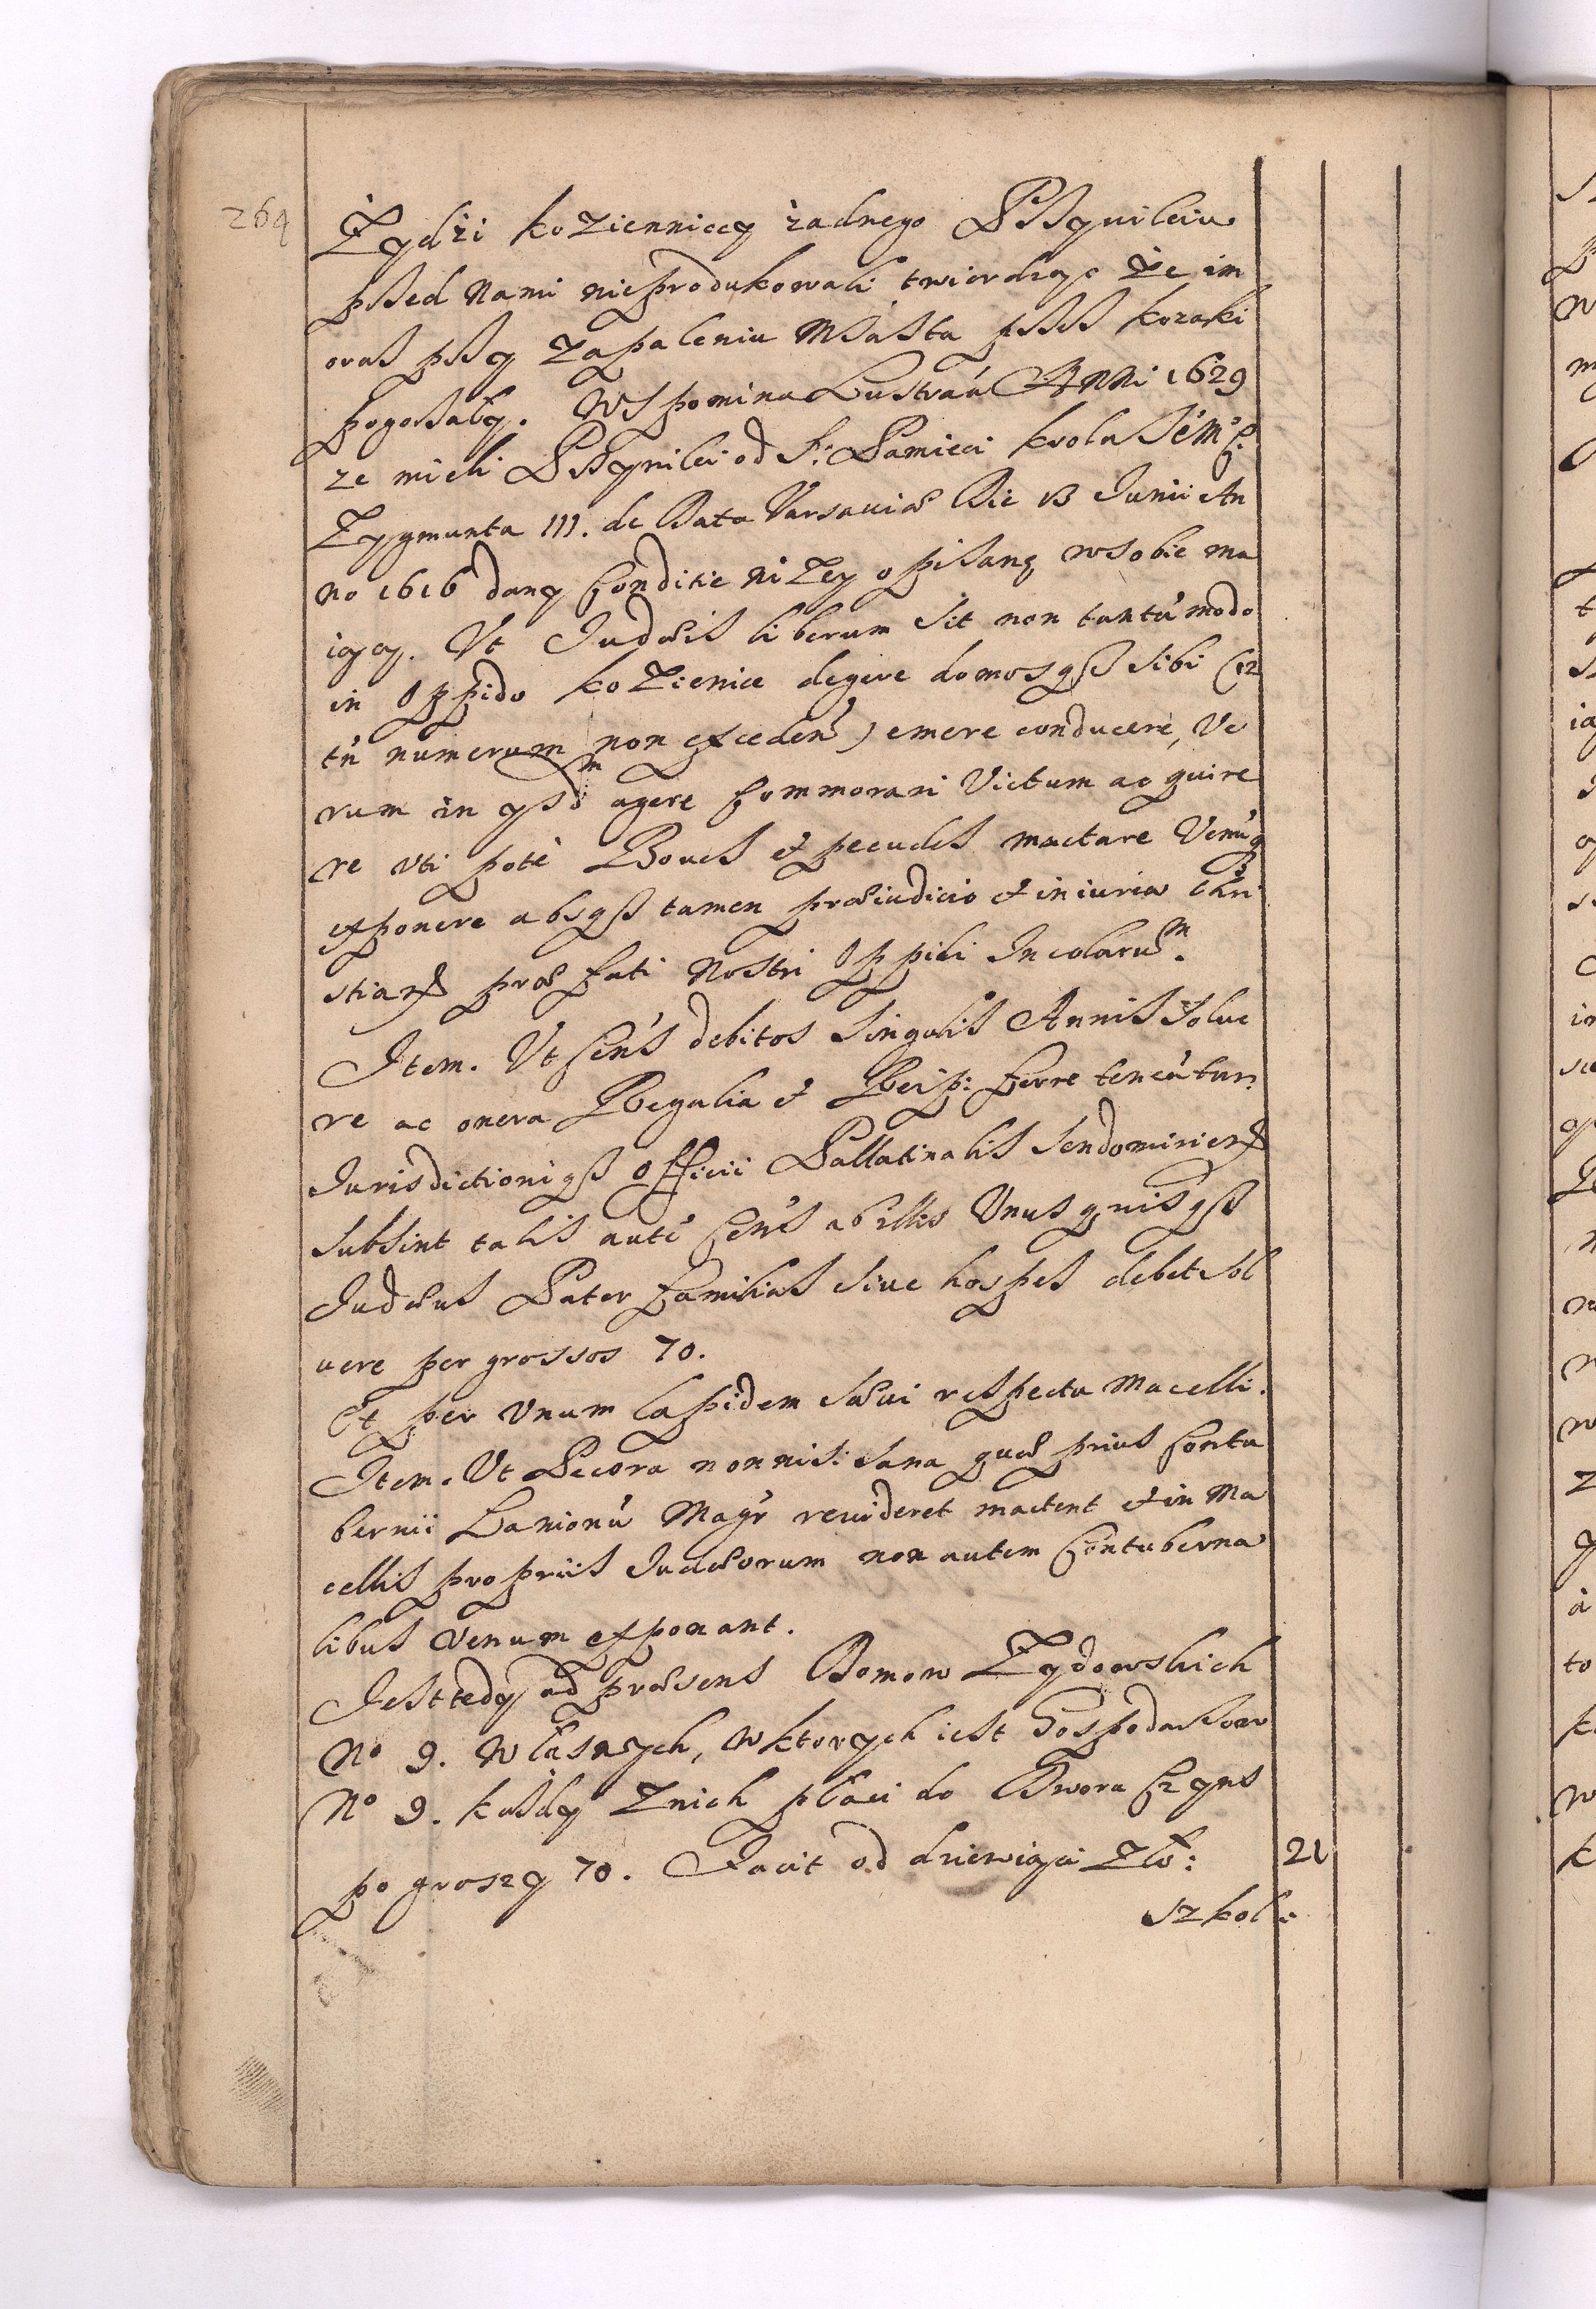 264
Żydźi kozienniccy żadnego PRzywileiu
przed Nami nieprodukowali, twierdząc że im
oraz przy zapaleniu Miasta przez kozaki
pogorzały. Wspomina Lustraā Anni 1629
ze mieli PRzywilei od S: Pamięci krola Jem°
Zygmunta III. de Data Varsaviæ Die 13 Junii An
no 1616 dany Conditie niżey opisane wsobie ma
iący. Vt Judæis liberum sit non tantū modo
in Oppido kozienice degere domosqß sibi (12
tñ numerum non excedeñ) emere conducere, Ve
rum in qsdm agere Commorari Victum acquire
re vti potè Boves et pecudes mactare Venūq
exponere absqß tamen præiudicio et iniuria Chri
stian præfati Nostri Oppidi Incolarum.
Item. Vt Ceñs debitos singulis Annis Solve
re ac onera Regalia et Reip: ferre teneātur.
Jurisdictioniqß officii Pallatinalis Sendomirien
subsint talis autē Ceñs ab illis Vnusquisqß
Judæus Pater familias sive hospes debet sol
vere per grossos 70.
Et per Vnum lapidem sævi respectu Macelli.
Item. Vt Pecora nonnisi sana quæ prius Contu
bernii Lanionū Magr̄ revideret mactent et in Ma
cellis propriis Judæorum non autem Contuberna
libus venum exponant.
Jest tedy ad præsens Domow Żydowskich
N° 9. Własnych, w ktorych iest Gospodarzow
N° 9. każdy z nich płaci do Dwora Czyns
po groszy 70. Facit od dziewiąci Zło: 21
szkoł: